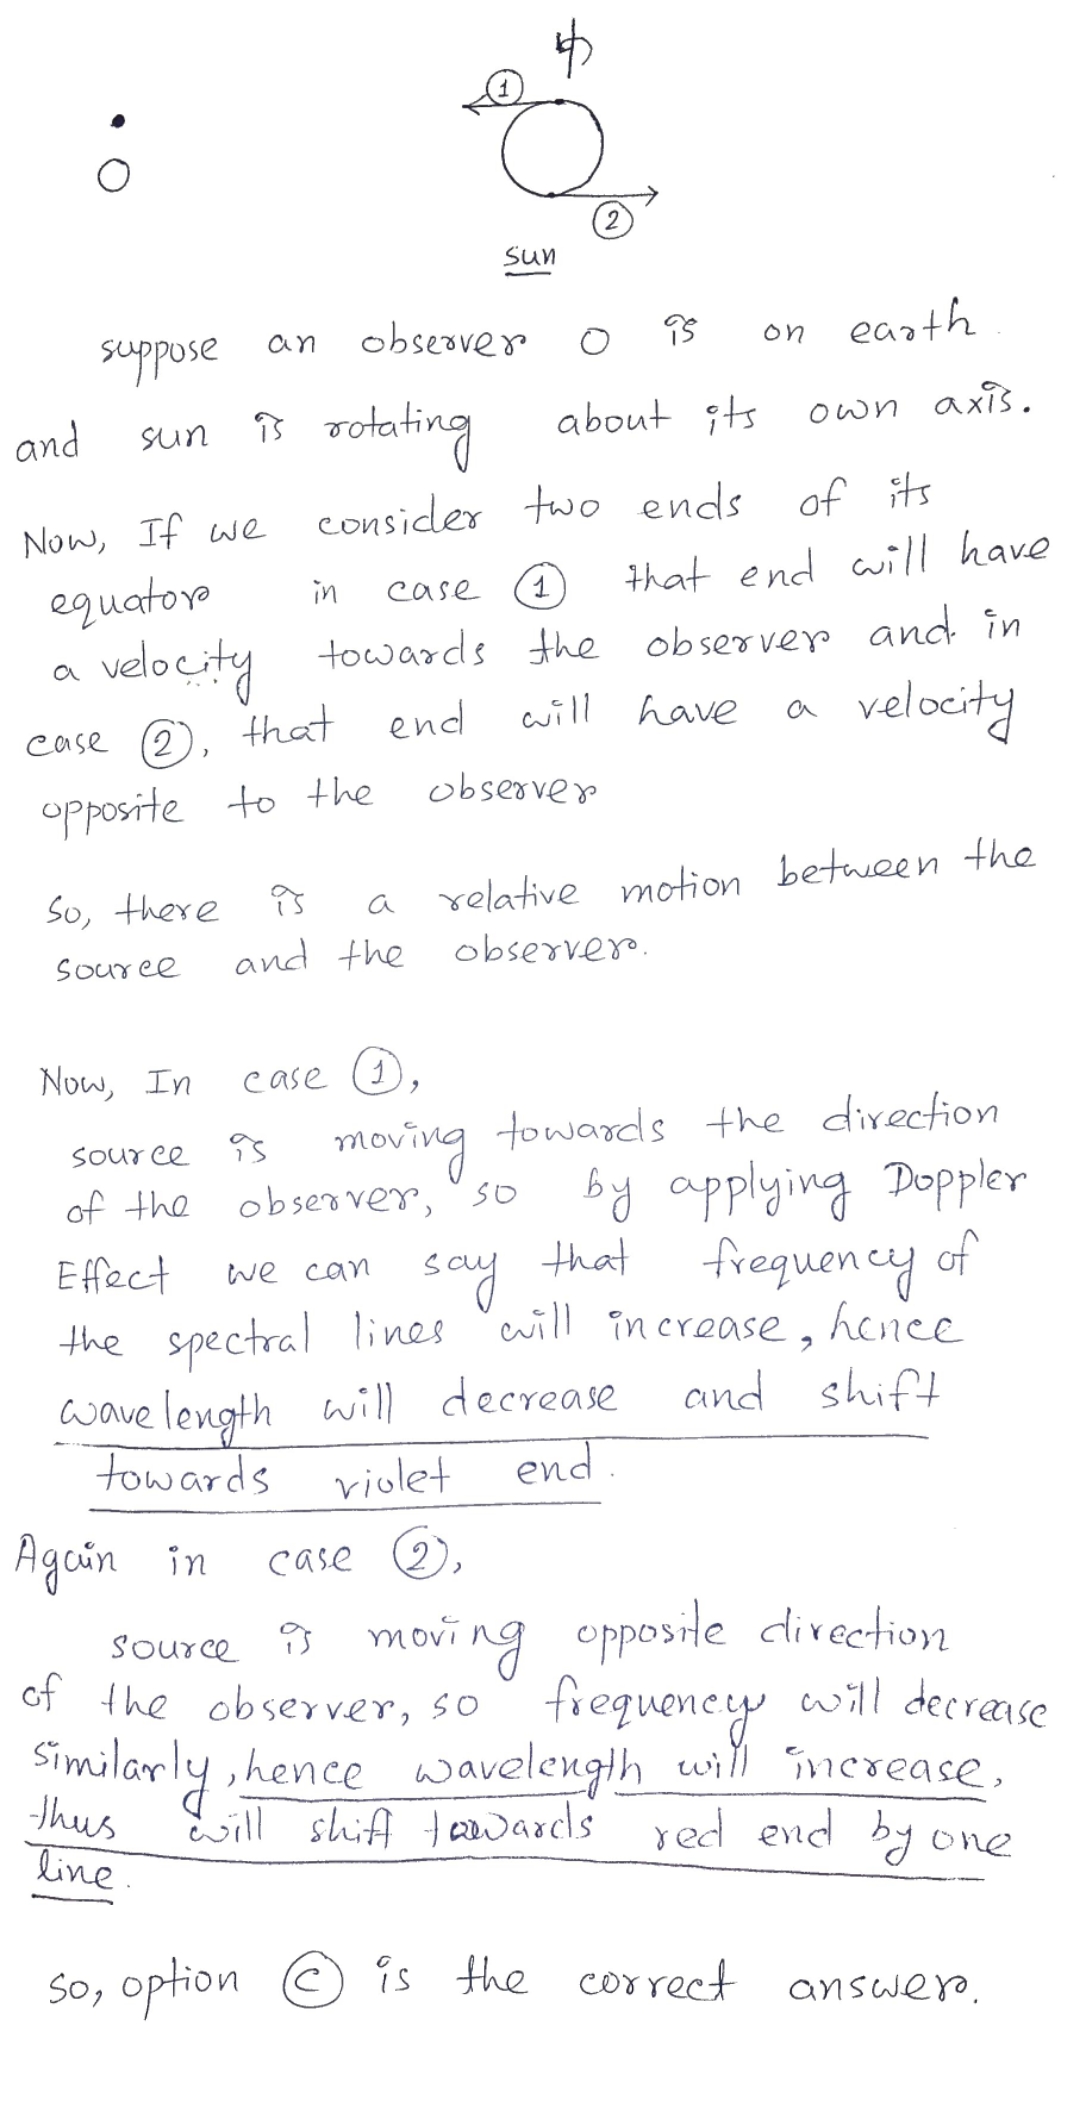 1
O
2
sun
suppose an observer O is on earth
and sun is rotating about its own axis.
Now, If we consider two ends of its
equator in case ① that end will have
a velocity towards the observer and in
case ②, that end will have a velocity
opposite to the observer
So, there is a relative motion between the
source and the observer.
Now, In case ①,
source is moving towards the direction
of the observer, so by applying Doppler
Effect we can say that frequency of
the spectral lines will increase, hence
wavelength will decrease and shift
towards violet end.
Again in case ②,
source is moving opposite direction
of the observer, so frequency will decrease
similarly, hence wavelength will increase,
thus will shift towards red end by one
line.
so, option Ⓒ is the correct answer.